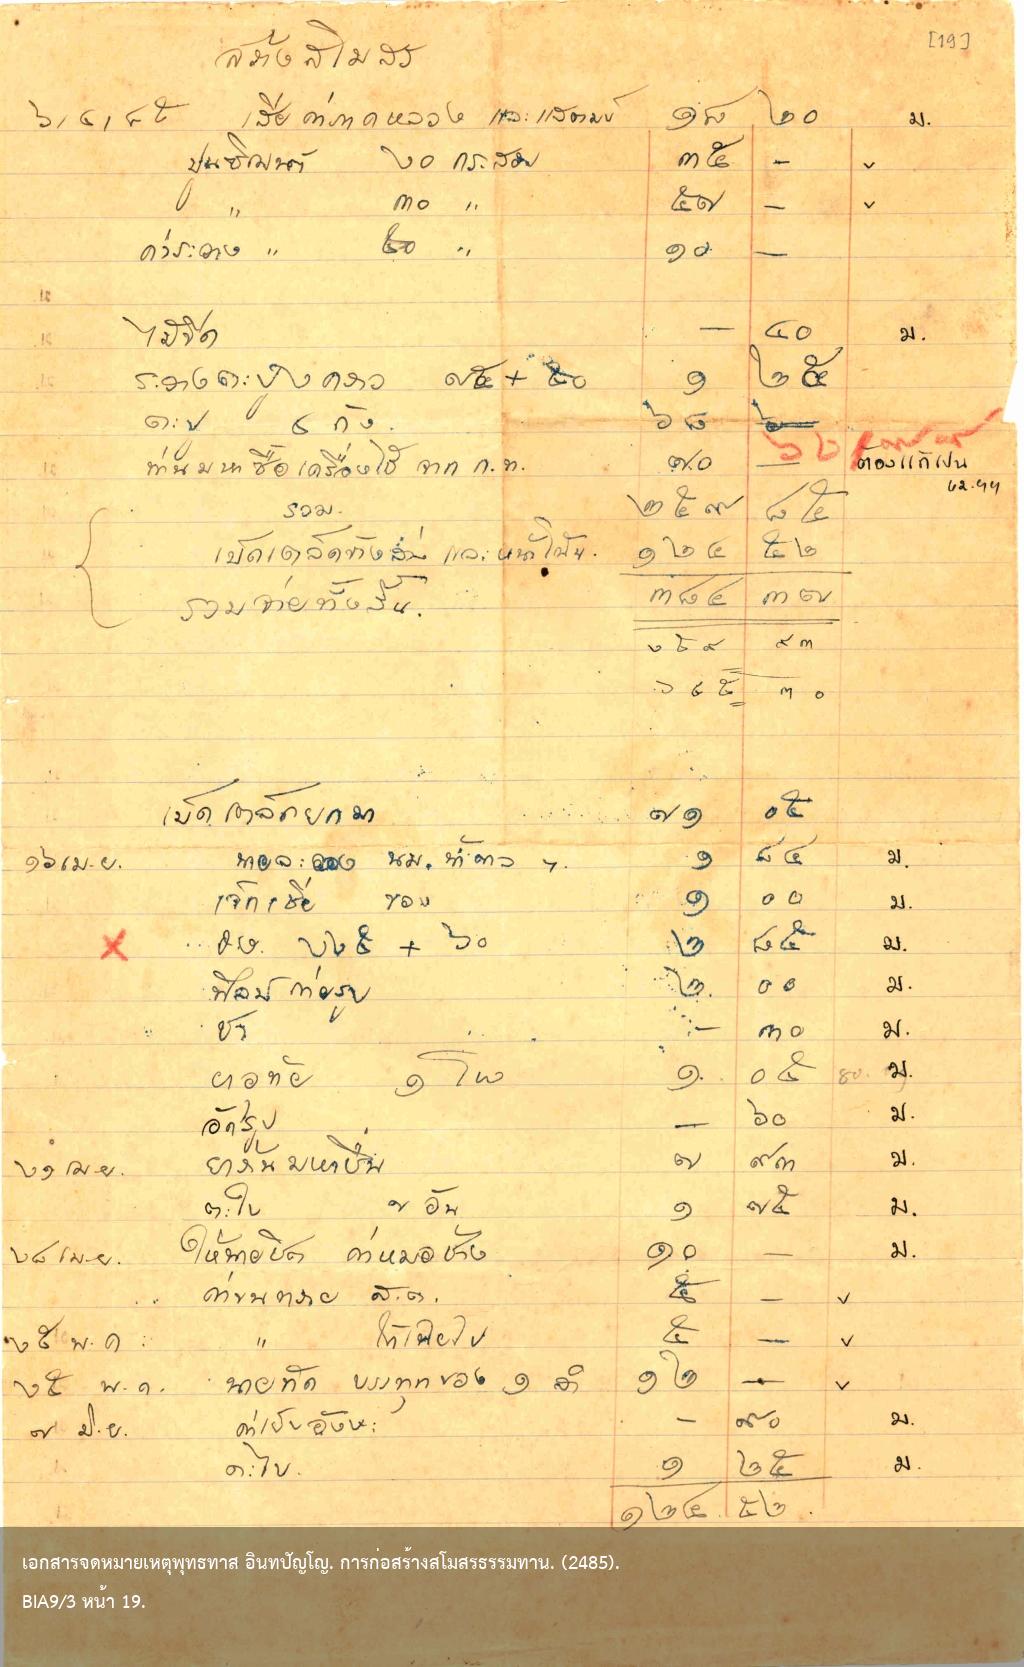 [19]
สร้างสโมสร
๖/๔/๘๕ เสีย ค่าภาคหลวง และแสตมป์ ๑๘ ๒๐ ม.
ปูนซิเมนต์ ๒๐ กระสอบ ๓๕ –
" ๓๐ " ๕๗ –
ค่าระวาง " ๕๐ " ๑๐ –
ไม้ขีด – ๔๐ ม.
ระวางตะปู ๗๕ + ๕๐ ๑ ๒๕
ตะปู ๔ ถัง. ๖๘
ท่านมหาซื้อเครื่องใช้ จาก ก.ท. ๗๐ – ต้องแก้เป็น
รวม. ๒๕๙ ๘๕
เบ็ดเตล็ดข้างล่าง และหน้าโน้น. ๑๒๔ ๕๒
รวมจ่ายทั้งสิ้น. ๓๘๔ ๓๗
๒๖๙ ๙๓
๖๔๕ ๓๐
เบ็ดเตล็ดยกมา ๗๑ ๐๕
๑๖ เม.ย. ๑ ๘๔ ม.
เจ๊กเซี้ย ของ ๑ ๐๐ ม.
X ๒๒๕ + ๖๐ ๒ ๘๕ ม.
ฟิลม์ ถ่ายรูป ๒. ๐๐ ม.
ชา – ๓๐ ม.
ยาอุทัย ๑ โหล ๑. ๐๕ ม.
อัดรูป – ๖๐ ม.
๒๑ เม.ย. ๗ ๙๓ ม.
ตะไบ ๒ อัน ๑ ๗๕ ม.
๒๘ เม.ย. ให้นายชิต ค่าหมอช้าง ๑๐ – ม.
ค่าขนทราย ส.ต. ๕ –
๒๕ พ.ค. " ๕ –
๒๕ พ.ค. นายทัด บรรทุกของ ๑ ลำ ๑๒ –
๗ มิ.ย. – ๙๐ ม.
ตะไบ. ๑ ๒๕ ม.
๑๒๔ ๕๒
เอกสารจดหมายเหตุพุทธทาส อินทปัญโญ. การก่อสร้างสโมสรธรรมทาน. (2485).
BIA9/3 หน้า 19.